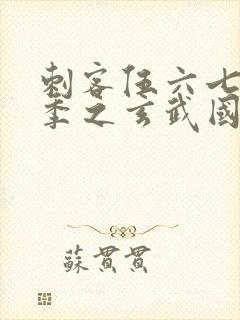 刺客伍六七
季之玄武國
蘇貫貫